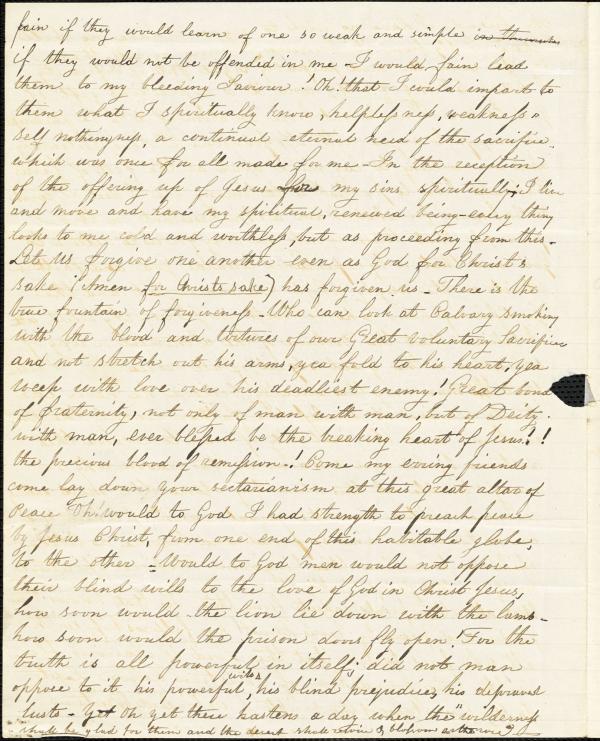 fain if they would learn of one so weak and simple
if they would not be offended in me - I would fain lead
them to my bleeding Saviour! Oh! that I could impart to
them what I spiritually know, helplessness, weakness,
self nothingness, a continual eternal need of the sacrifice
which was once for all made for me - In the reception
of the offering up of Jesus for my sins, spiritually, I live
and move and have my spiritual, renewed being - every thing
looks to me cold and worthless, but as proceeding from this -
Let us forgive one another even as God for Christ's
sake (Amen for Christs sake) has forgiven us - There is the
true fountain of forgiveness - Who can look at Calvary smoking
with the blood and tortures of our Great Voluntary Sacrifice
and not stretch out his arms, yea fold to his heart, yea
weep with love over his deadliest enemy! Great bond
of fraternity, not only of man with man, but of Deity
with man, ever blessed be the breaking heart of Jesus!!
the precious blood of remission! Come my erring friends
come lay down your sectarianism at this great altar of
Peace Oh! would to God I had strength to preach peace
by Jesus Christ, from one end of this habitable globe,
to the other - Would to God men would not oppose
their blind wills to the love of God in Christ Jesus,
how soon would the lion lie down with the lamb -
how soon would the prison doors fly open! For the
truth is all powerful in itself, did not man
oppose to it his powerful will, his blind prejudice, his depraved
lusts - Yet Oh yet there hastens a day when the "wilderness
shall be glad for them and the desert shall rejoice & blossom as the rose"